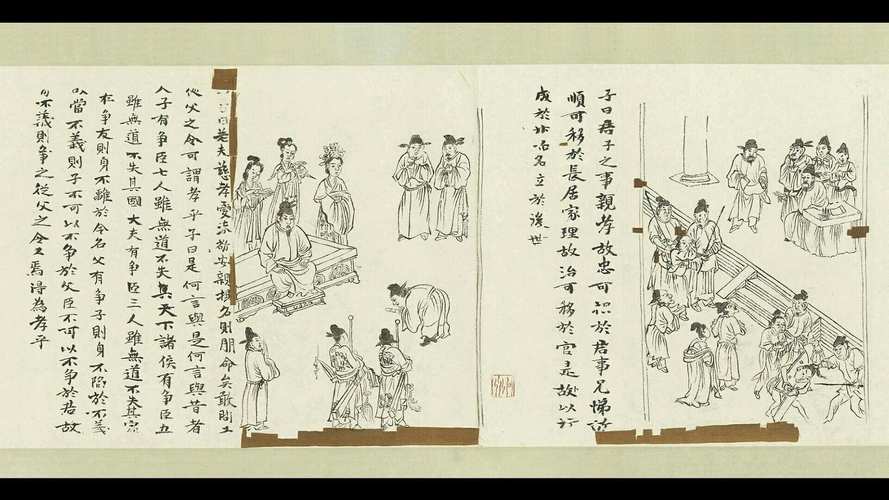 子曰君子之事親孝故忠可移於君事兄悌故
順可移於長居家理故治可移於官是故以行
成於內名立於後世
子曰若夫慈愛恭敬安親揚名則聞命矣敢問
從父之令可謂孝乎子曰是何言與是何言與昔者
子有爭臣七人雖無道不失其天下諸侯有爭臣五
雖無道不失其國大夫有爭臣三人雖無道不失其家
有爭友則身不離於令名父有爭子則身不陷於不義
當不義則子不可以不爭於父臣不可以不爭於君故
不義則爭之從父之令又焉得為孝乎